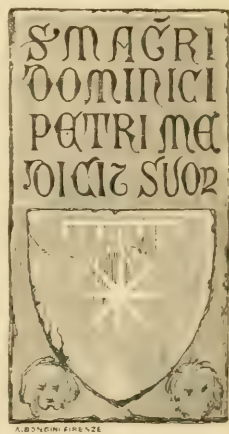 S·MAGR̃I
DOMINICI
PETRI ME
DICI ⁊ SUOꝝ
A. BONGINI FIRENZE